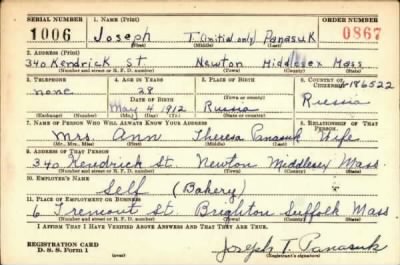 SERIAL NUMBER 1. NAME (Print) ORDER NUMBER
1006 Joseph T. (initial only) Panasuk 0867
(First) (Middle) (Last)
2. ADDRESS (Print)
340 Kendrick St. Newton Middlesex Mass
(Number and street or R. F. D. number) (Town) (County) (State)
3. TELEPHONE 4. AGE IN YEARS 5. PLACE OF BIRTH 6. COUNTRY OF CITIZENSHIP
none 28 #186522
DATE OF BIRTH (Town or county) Russia
May 4 1912 Russia
(Exchange) (Number) (Mo.) (Day) (Yr.) (State or country)
7. NAME OF PERSON WHO WILL ALWAYS KNOW YOUR ADDRESS 8. RELATIONSHIP OF THAT PERSON
Mrs. Ann Theresa Panasuk Wife
(Mr., Mrs., Miss) (First) (Middle) (Last)
9. ADDRESS OF THAT PERSON
340 Kendrick St. Newton Middlesex Mass.
(Number and street or R. F. D. number) (Town) (County) (State)
10. EMPLOYER'S NAME
Self (Bakery)
11. PLACE OF EMPLOYMENT OR BUSINESS
6 Tremont St. Brighton Suffolk Mass
(Number and street or R. F. D. number) (Town) (County) (State)
I AFFIRM THAT I HAVE VERIFIED ABOVE ANSWERS AND THAT THEY ARE TRUE.
REGISTRATION CARD Joseph T. Panasuk
D. S. S. Form 1 (Registrant's signature)